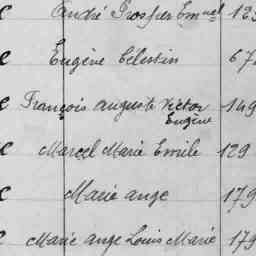 e André Prosper Emel 123
e Eugène Célestin 67
e François auguste Victor 149
Eugène
e Marcel Marie Emile 129
e Marie ange 179
e Marie Ange Louis Marie 179